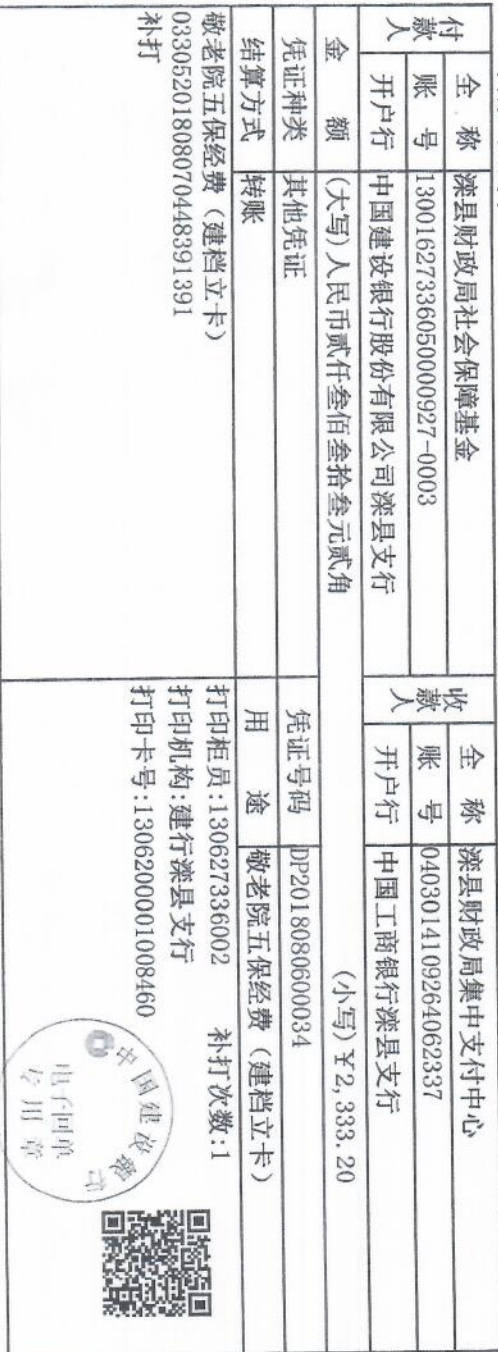 付款人 全 称 滦县财政局社会保障基金 收款人 全 称 滦县财政局集中支付中心
账 号 13001627336050000927-0003 账 号 0403014109264062337
开户行 中国建设银行股份有限公司滦县支行 开户行 中国工商银行滦县支行
金 额 (大写)人民币贰仟叁佰叁拾叁元贰角 (小写)￥2,333.20
凭证种类 其他凭证 凭证号码 DP201808060034
结算方式 转账 用 途 敬老院五保经费（建档立卡）
敬老院五保经费（建档立卡）
033052018080704483913​91
补打
打印柜员:130627336002 补打次数:1
打印机构:建行滦县支行
打印卡号:1306200001008460
中国建设银行
电子回单
专用章